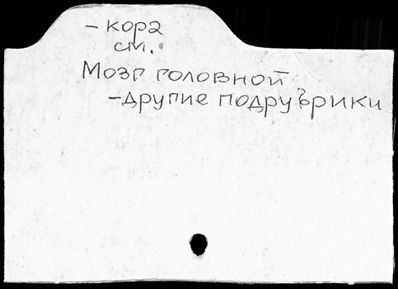 - кора
см.
Мозг головной
- другие подрубрики